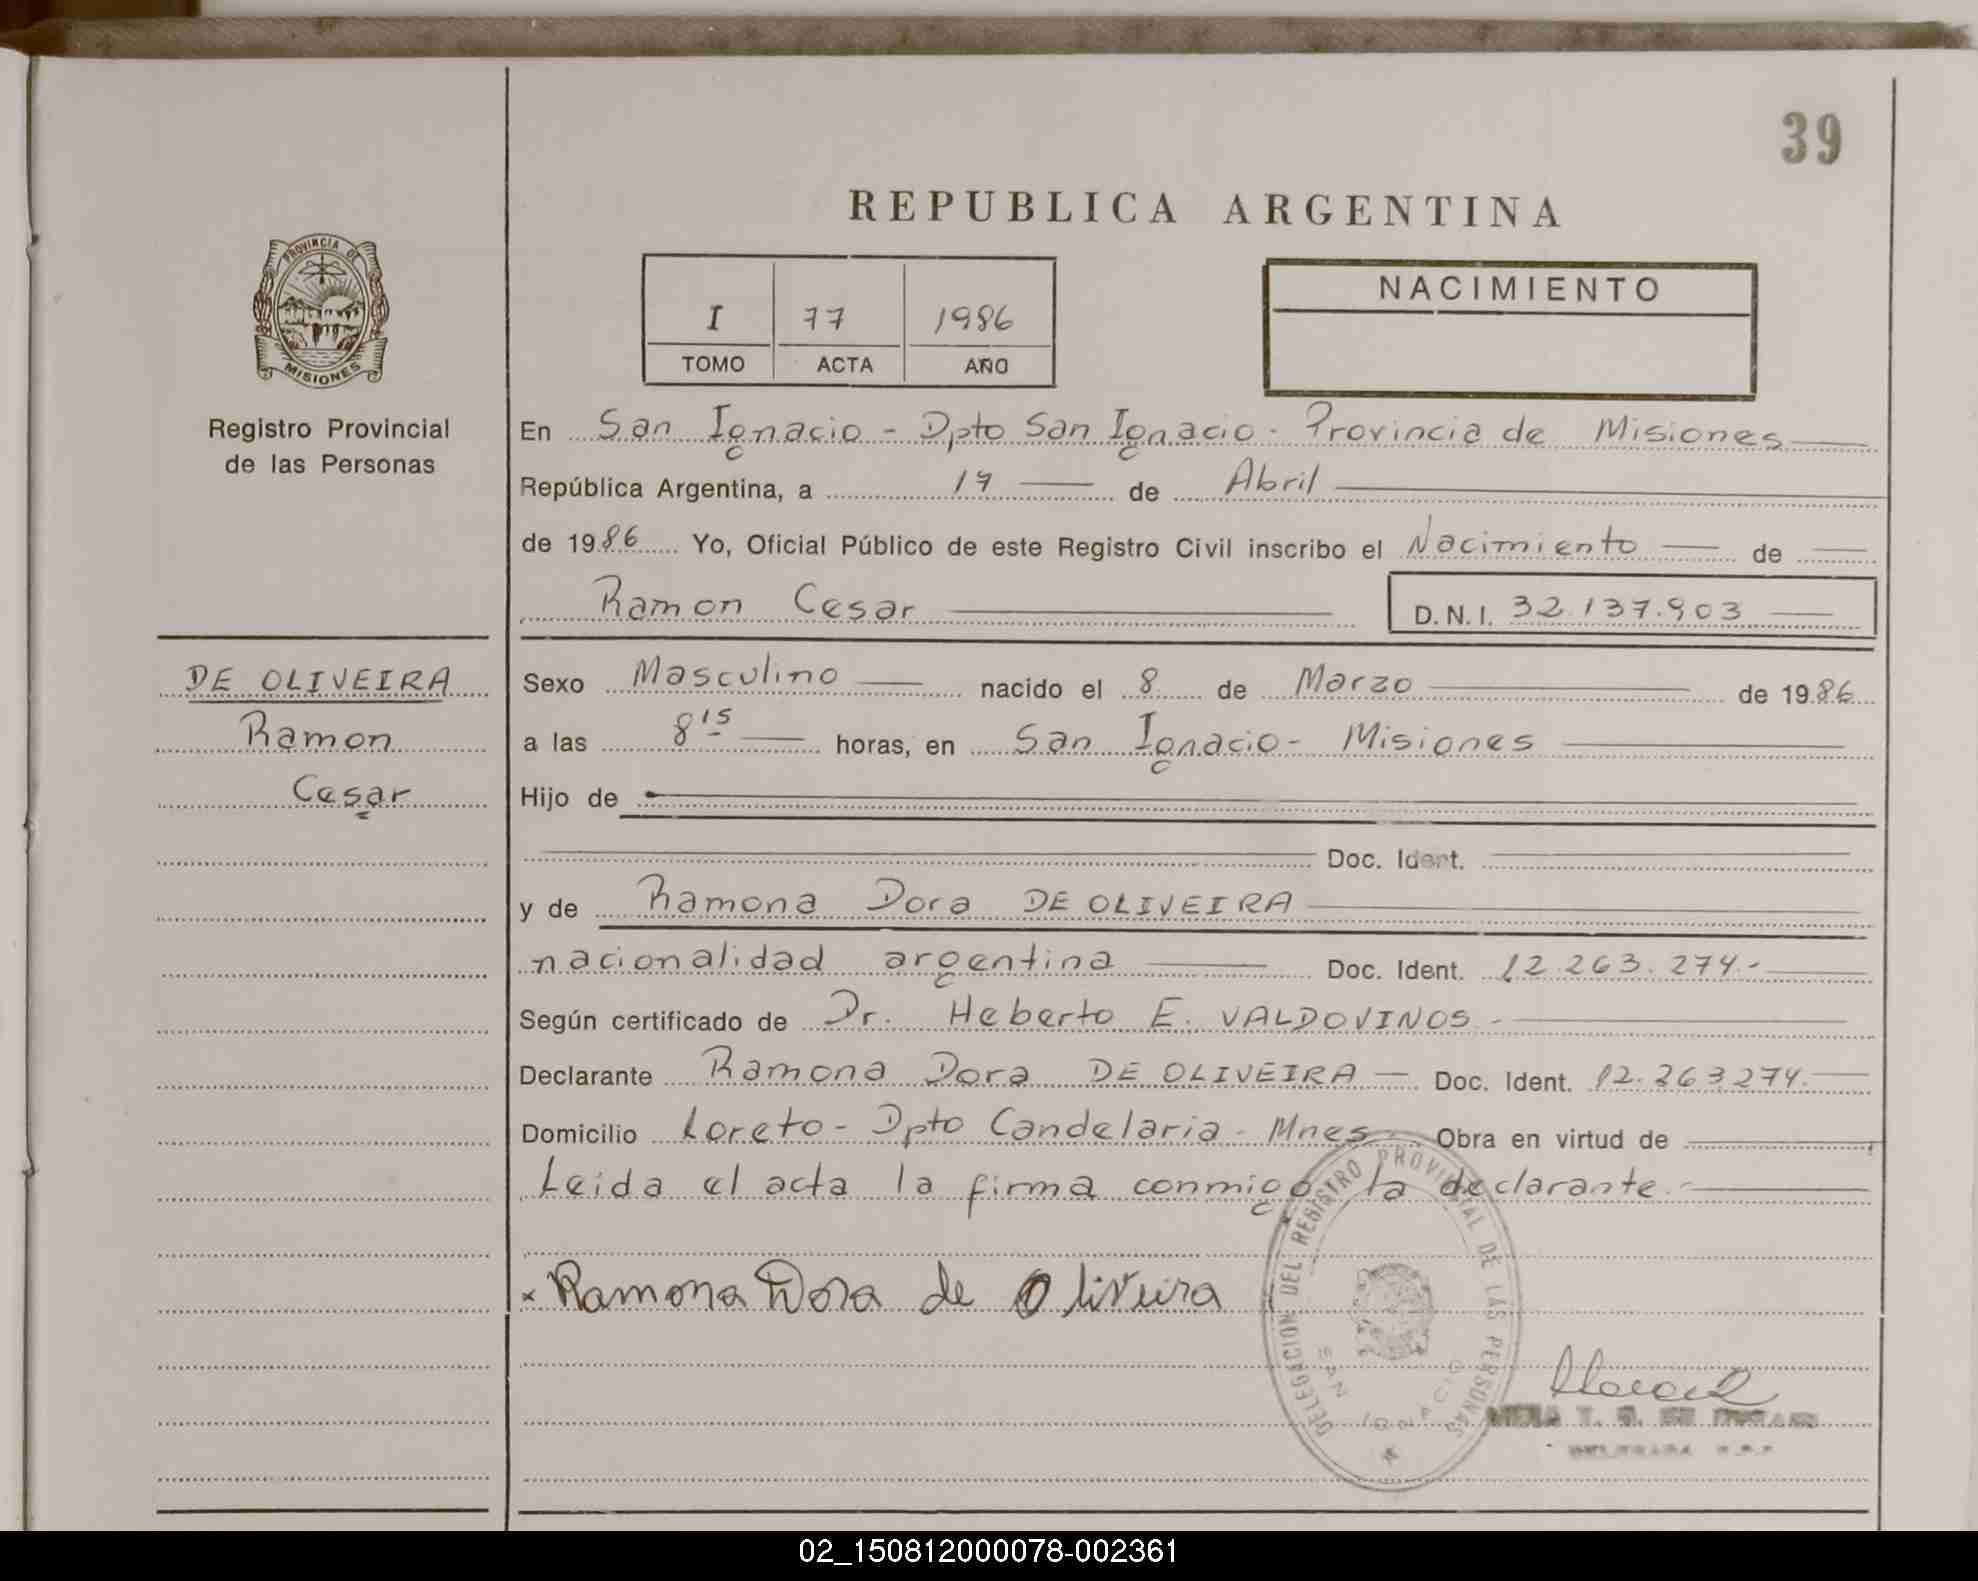 39
REPUBLICA ARGENTINA
PROVINCIA DE
MISIONES
Registro Provincial
de las Personas
I 77 1986
TOMO ACTA AÑO
NACIMIENTO
En San Ignacio - Dpto San Ignacio - Provincia de Misiones
República Argentina, a 17 de Abril
de 1986 Yo, Oficial Público de este Registro Civil inscribo el Nacimiento de
Ramon Cesar D.N.I. 32.137.903
DE OLIVEIRA
Ramon
Cesar
Sexo Masculino nacido el 8 de Marzo de 1986
a las 8 15 horas, en San Ignacio - Misiones
Hijo de
Doc. Ident.
y de Ramona Dora DE OLIVEIRA
nacionalidad argentina Doc. Ident. 12.263.274.-
Según certificado de Dr. Heberto E. VALDOVINOS -
Declarante Ramona Dora DE OLIVEIRA - Doc. Ident. 12.263.274.
Domicilio Loreto - Dpto Candelaria - Mnes. Obra en virtud de
Leida el acta la firma conmigo la declarante.-
x Ramona Dora de Oliveira
DELEGACION DEL REGISTRO PROVINCIAL DE LAS PERSONAS
SAN IGNACIO
02_150812000078-002361